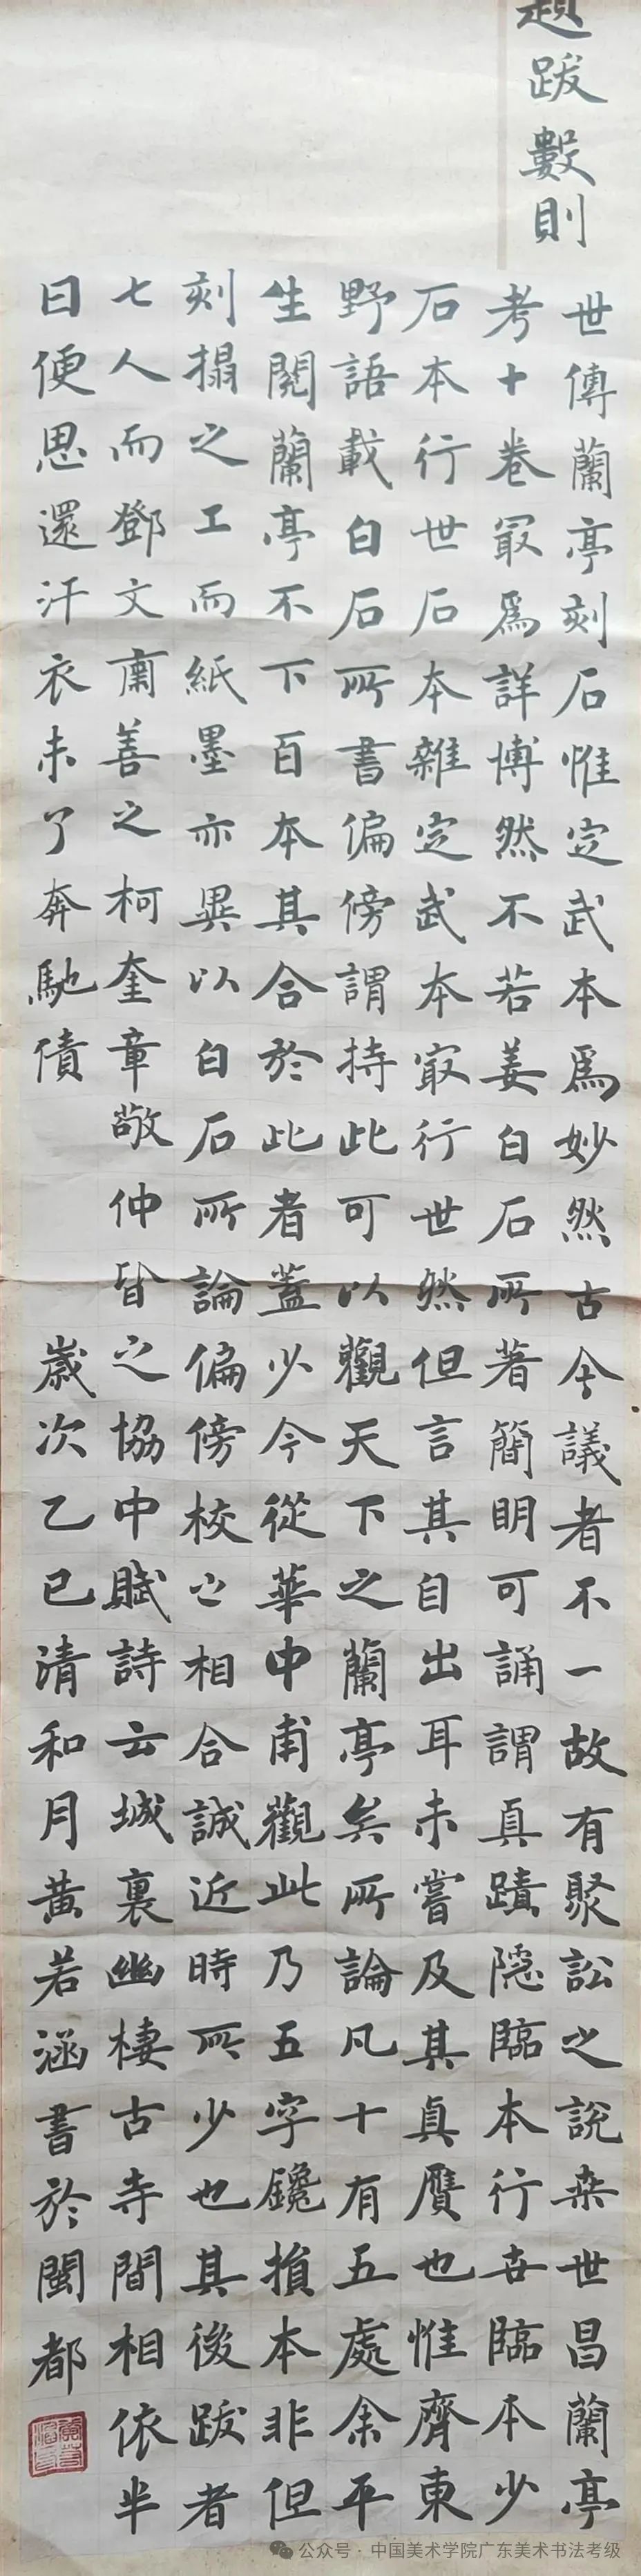 題跋數則
世傳蘭亭刻石惟定武本爲妙然古今議者不一故有聚訟之說桒世昌蘭亭
考十卷最爲詳博然不若姜白石所著簡明可誦謂真蹟隱臨本行世臨本少
石本行世石本雜定武本最行世然但言其自出耳未嘗及其真贋也惟齊東
野語載白石所書偏傍謂持此可以觀天下之蘭亭矣所論凡十有五處余平
生閱蘭亭不下百本其合於此者蓋少今從華中甫觀此乃五字鑱損本非但
刻搨之工而紙墨亦異以白石所論偏傍校之相合誠近時所少也其後跋者
七人而鄧文肅善之柯奎章敬仲皆之協中賦詩云城裏幽棲古寺間相依半
日便思還汗衣未了奔馳債 歲次乙巳清和月黃若涵書於閩都
公众号·中国美术学院广东美术书法考级